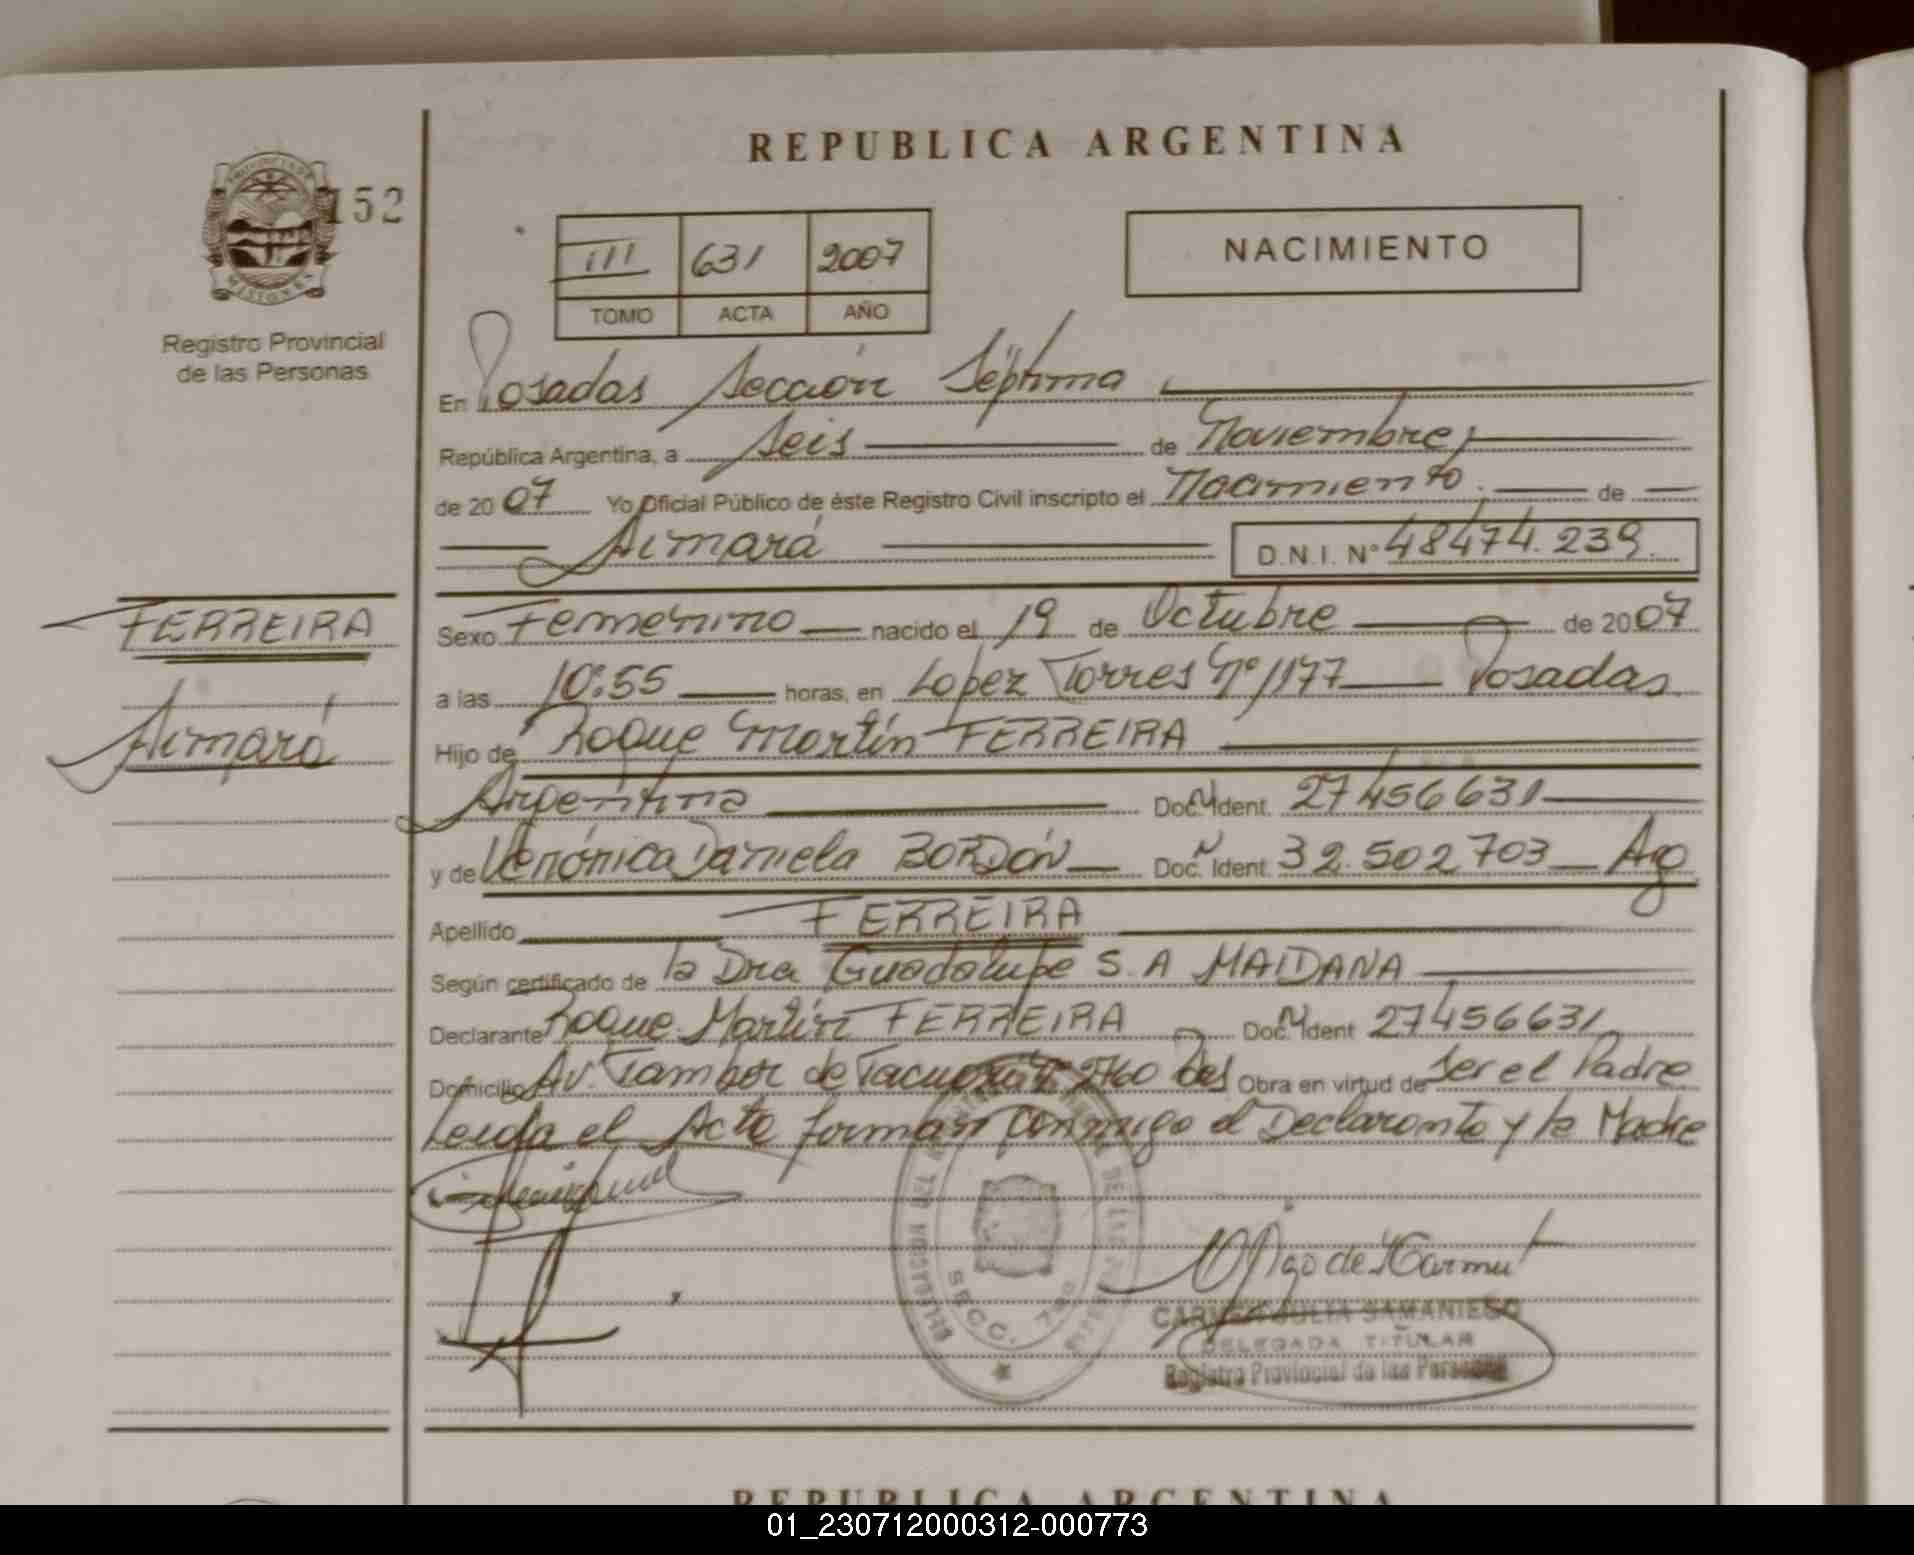 REPUBLICA ARGENTINA
152
NACIMIENTO
III 631 2007
TOMO ACTA AÑO
Registro Provincial
de las Personas
En Posadas Sección Séptima
República Argentina, a Seis de Noviembre
de 2007 Yo Oficial Público de éste Registro Civil inscripto el Nacimiento de
Aimará D.N.I. N° 48474.239
FERREIRA
Aimará
Sexo Femenino nacido el 19 de Octubre de 2007
a las 10:55 horas, en Lopez Torres Nº 1177 Posadas
Hijo de Roque Martín FERREIRA
Argentina Doc. Ident. 27456631
y de Verónica Daniela BORDÓN Doc. Ident. 32.502703 Arg
Apellido FERREIRA
Según certificado de la Dra Guadalupe S.A MAIDANA
Declarante Roque Martín FERREIRA Doc. Ident 27456631
Domicilio Av. Tambor de Tacuarí 2760 Obra en virtud de Ser el Padre
Leida el Acta forman conmigo el Declarante y la Madre
SECC. 7ma
CARMEN JULIA SAMANIEGO
DELEGADA TITULAR
Registro Provincial de las Personas
REPUBLICA ARGENTINA
01_230712000312-000773